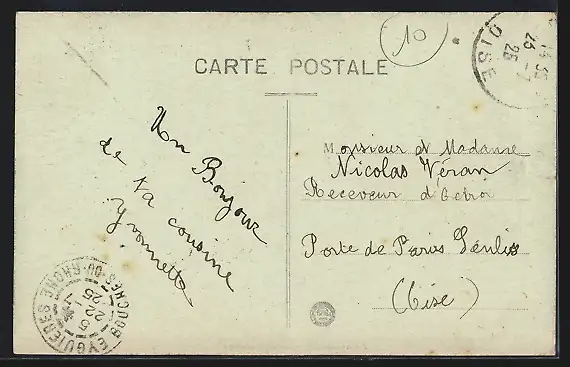 10
CARTE POSTALE
OISE
14 35
25 - 7
25
Un Bonjour
de ta cousine
Yvonnette
Monsieur et Madame
Nicolas Véran
Receveur d'Octroi
Porte de Paris Senlis
(Oise)
EYGUIERES
BOUCHES-DU-RHONE
22 - 7
25